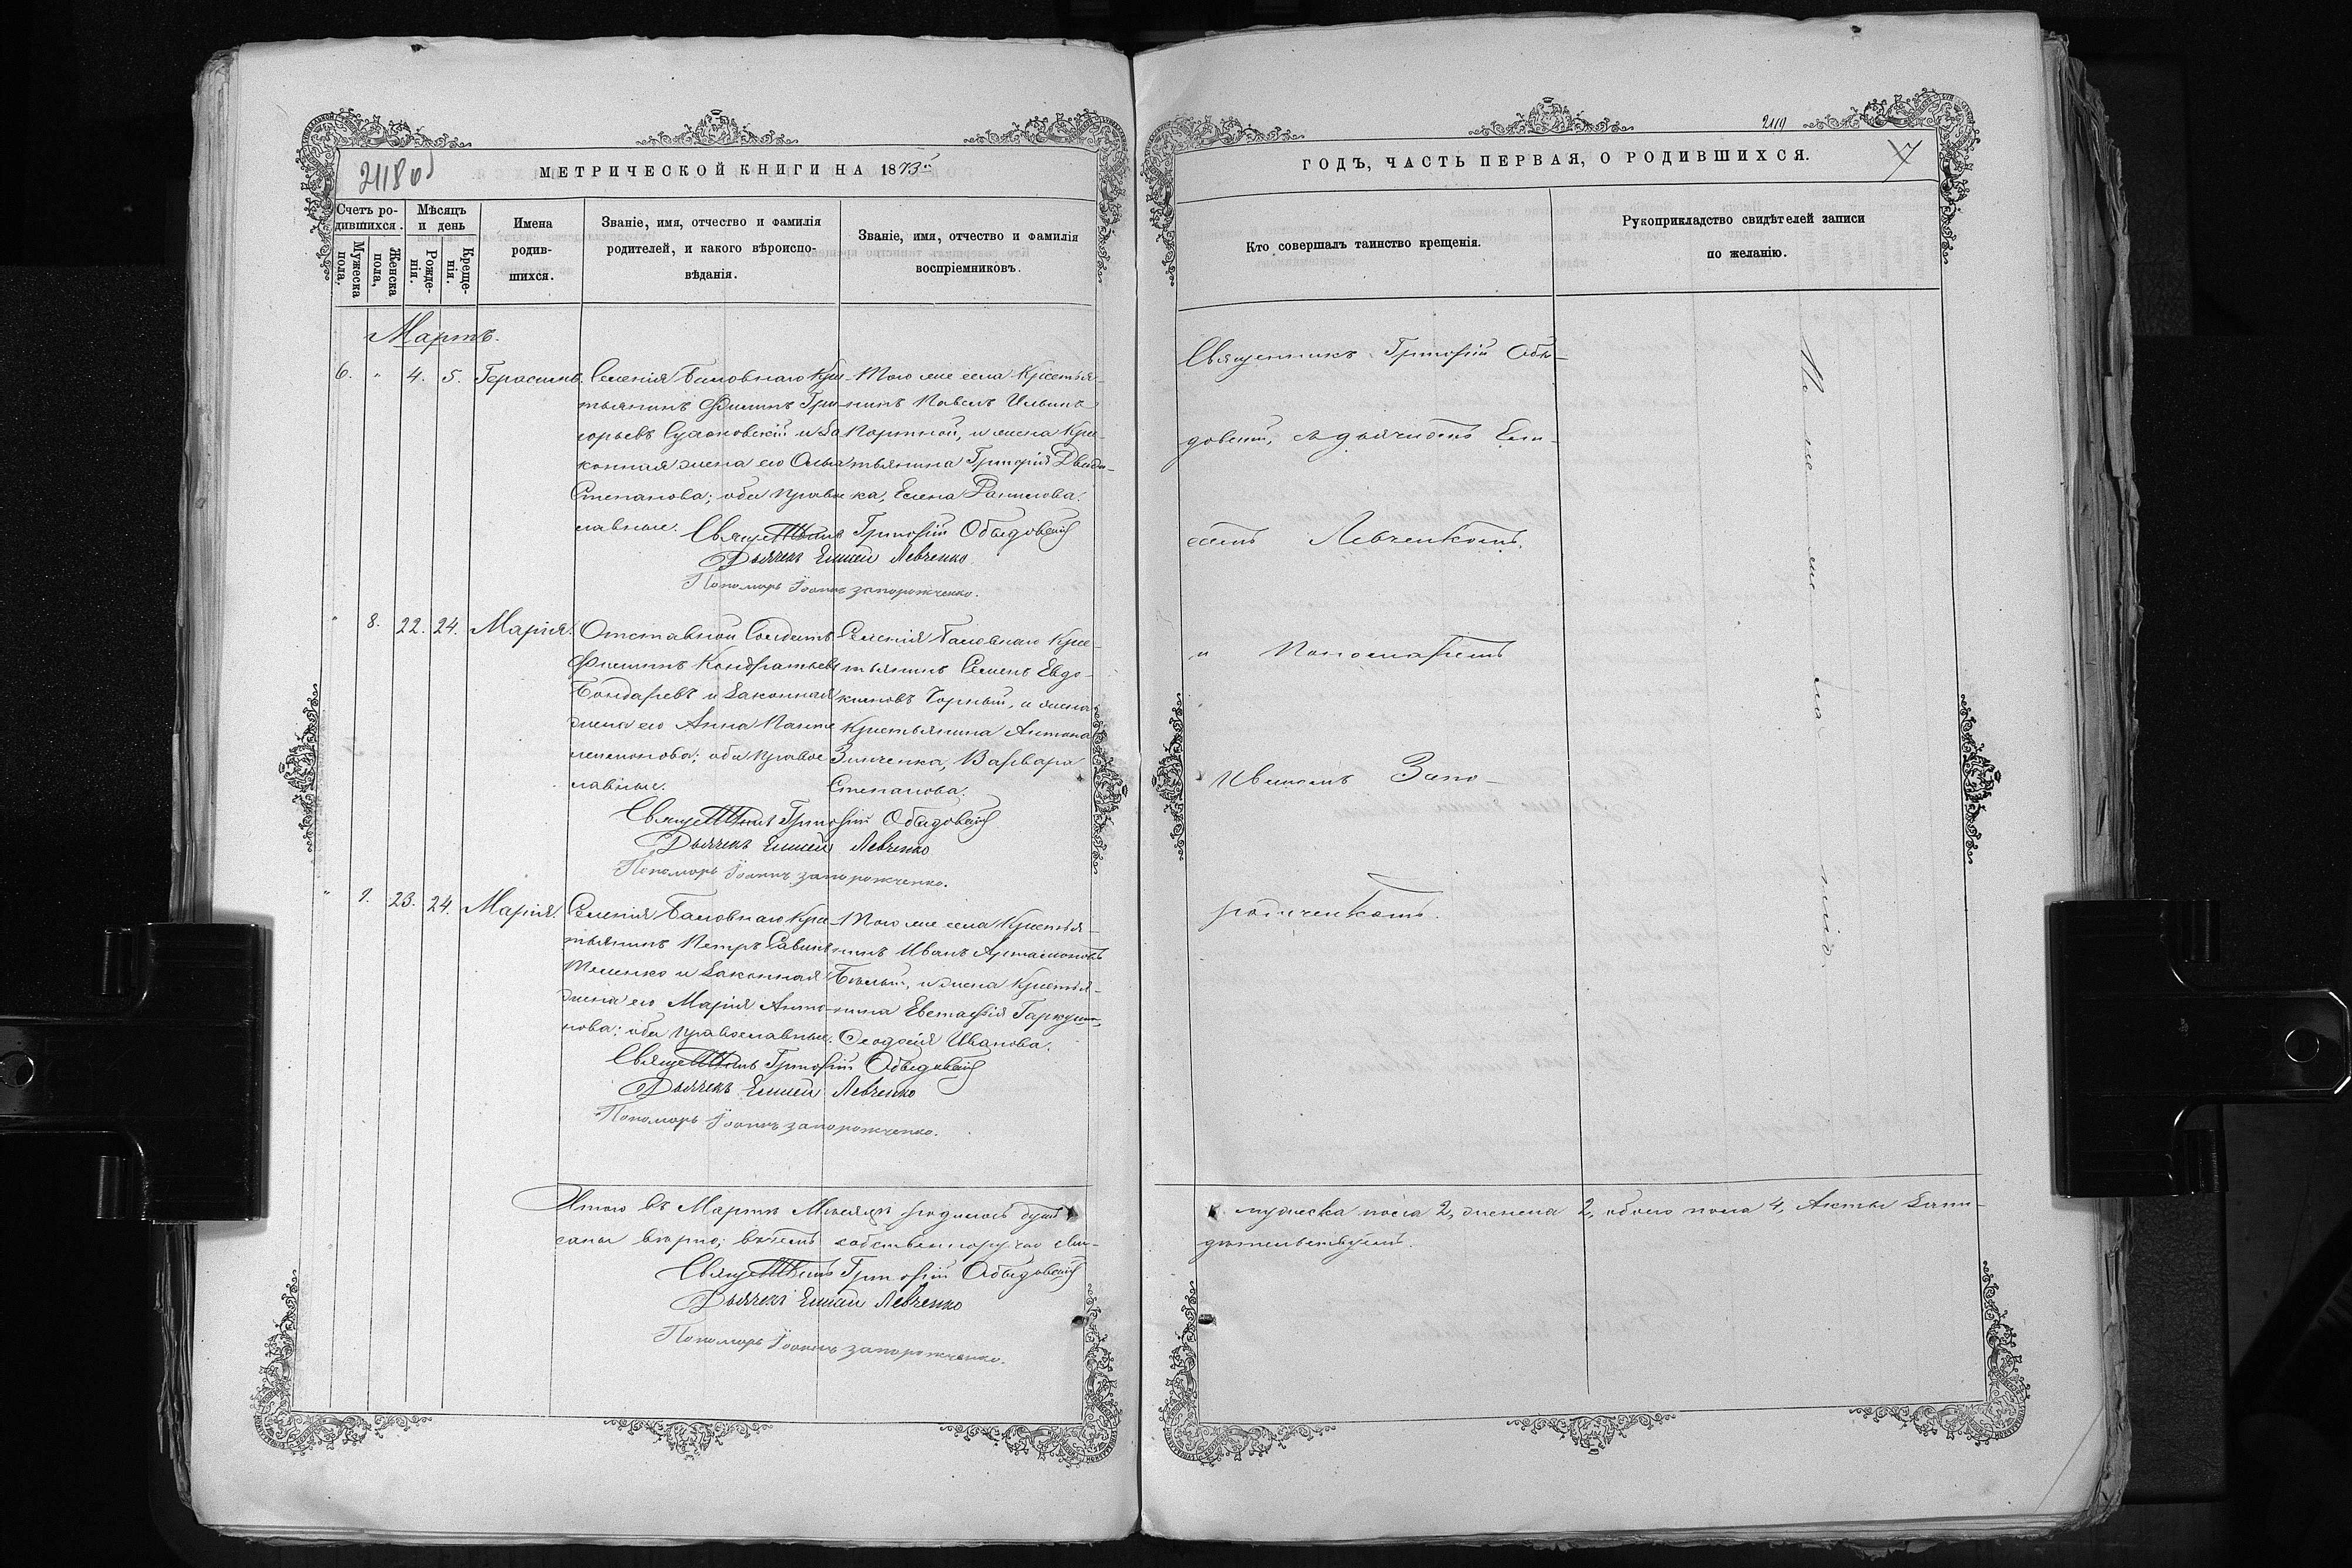 2118 об
МЕТРИЧЕСКОЙ КНИГИ НА 1873й
Счетъ ро-
дившихся.
Мужеска
пола.
Женска
пола,
Мѣсяцъ
и день
Рожде-
нія.
Креще-
нія.
Имена
родив-
шихся.
Званіе, имя, отчество и фамилія
родителей, и какого вѣроиспо-
вѣданія.
Званіе, имя, отчество и фамилія
воспріемниковъ.
Мартъ.
6. " 4. 5. Герасимъ.
Селенія Баловнаго Кре-
стьянинъ Филипъ Гри-
горьевъ и За
конная жена его Ольга
Степанова; оба право
славные.
Того же села Крестья-
нинъ Павелъ Ильинъ
Портной, и жена Кре-
стьянина Григорія
ка, Елена Данилова.
Священникъ Григорій Обѣдовскій
Дьячекъ Елисей Левченко
Пономарь Іоаннъ запорожченко.
" 8. 22. 24. Марія.
Отставной Солдатъ
Филипъ Кондратьевъ
Бондаревъ и Законная
жена его Анна Панте
леимонова; оба право
славные.
Селенія Баловнаго Кре-
стьянинъ Семенъ Евдо-
кимовъ Чорный, и жена
Крестьянина Антона
Зинченка, Варвара
Степанова.
Священникъ Григорій Обѣдовскій
Дьячекъ Елисей Левченко
Пономарь Іоаннъ запорожченко.
" 9. 23. 24. Марія.
Селенія Баловнаго Кре-
стьянинъ Петръ Савинъ
и Законная
жена его Марія Анто-
нова; оба православные.
Того же села Крестья-
нинъ Иванъ Артамоновъ
Бѣлый, и жена Крестья-
нина Евстафія
Ѳеодосія Иванова.
Священникъ Григорій Обѣдовскій
Дьячекъ Елисей Левченко
Пономарь Іоаннъ запорожченко.
Итого въ Мартѣ Мѣсяцѣ родилось душъ
саны вѣрно; въ чемъ собственноручно сви-
Священникъ Григорій Обѣдовскій
Дьячекъ Елисей Левченко
Пономарь Іоаннъ запорожченко.
2119
ГОДЪ, ЧАСТЬ ПЕРВАЯ, О РОДИВШИХСЯ.
7
Кто совершалъ таинство крещенія.
Рукоприкладство свидѣтелей записи
по желанію.
Священникъ Григорій Обѣ-
довскій, съ дьячкомъ Ели-
сеемъ Левченкомъ,
и Пономаремъ
Иваномъ Запо-
рожченкомъ.
Не же ла нія.
мужеска пола 2, женска 2, обоего пола 4, Акты Запи-
дѣтельствуемъ.